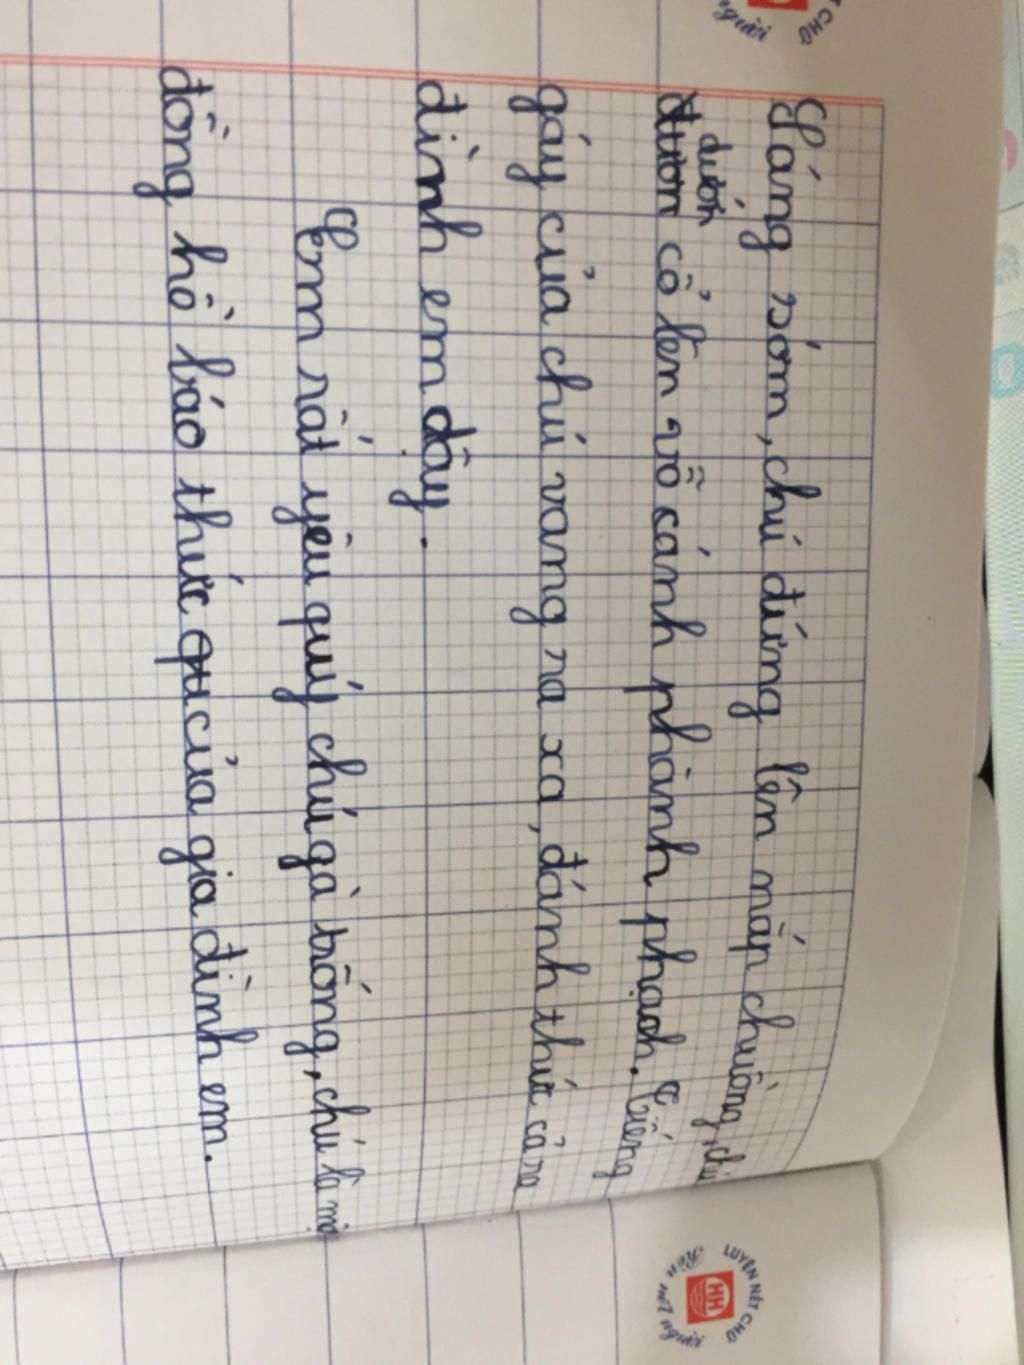 Sáng sớm, chú đứng lên nắp chuồng, chú
dướn
đươn cổ lên vỗ cánh phành phạch. Tiếng
gáy của chú vang ra xa, đánh thức cả ra
đình em dậy.
Em rất yêu quý chú gà trống, chú là mộ
đồng hồ báo thức qu của gia đình em.
LUYỆN NÉT CHỮ
Rèn nết người
HH
người
CHỮ